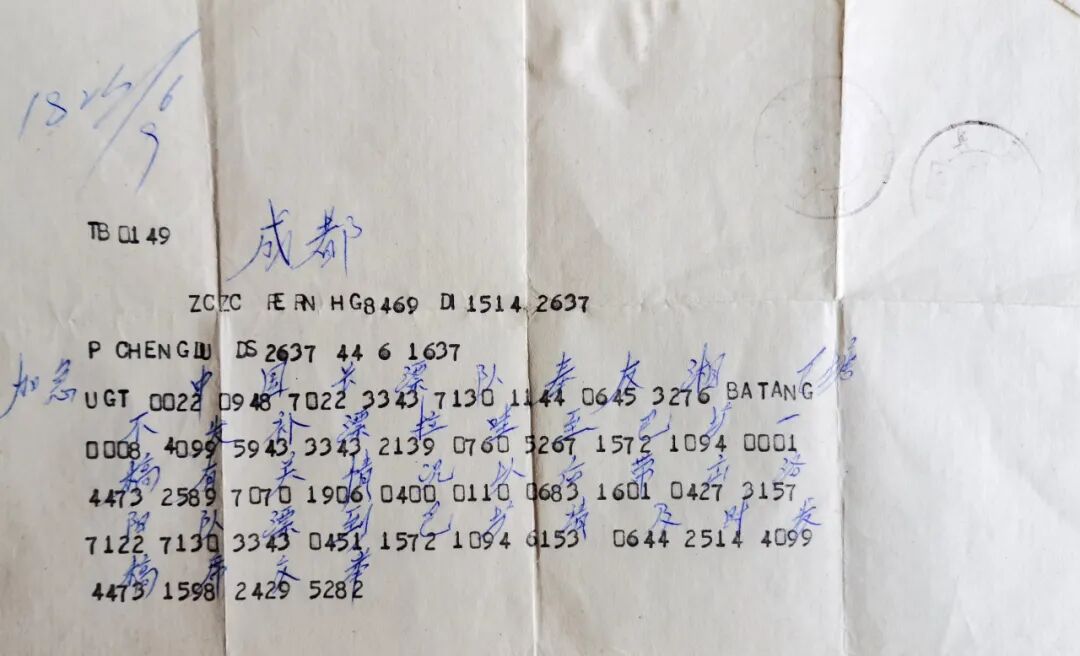 1825 6/9
TB 0149 成都
ZCZC HG8469 DI 1514 2637
P CHENGDU DS 2637 44 6 1637
加急 中 国 长 漂 队 奉 友 湘 巴塘
UGT 0022 0948 7022 3343 7130 1144 0645 3276 BATANG
不 发 补 漂 拉 哇 至 巴 圹 一
0008 4099 5943 3343 2139 0760 5267 1572 1094 0001
稿 有 关 情 况 以 后 带 出 洛
4473 2589 7070 1906 0400 0110 0683 1601 0427 3157
阳 队 漂 到 巴 圹 请 及 时 发
7122 7130 3343 0451 1572 1094 6153 0644 2514 4099
稿 席 文 举
4473 1598 2429 5282